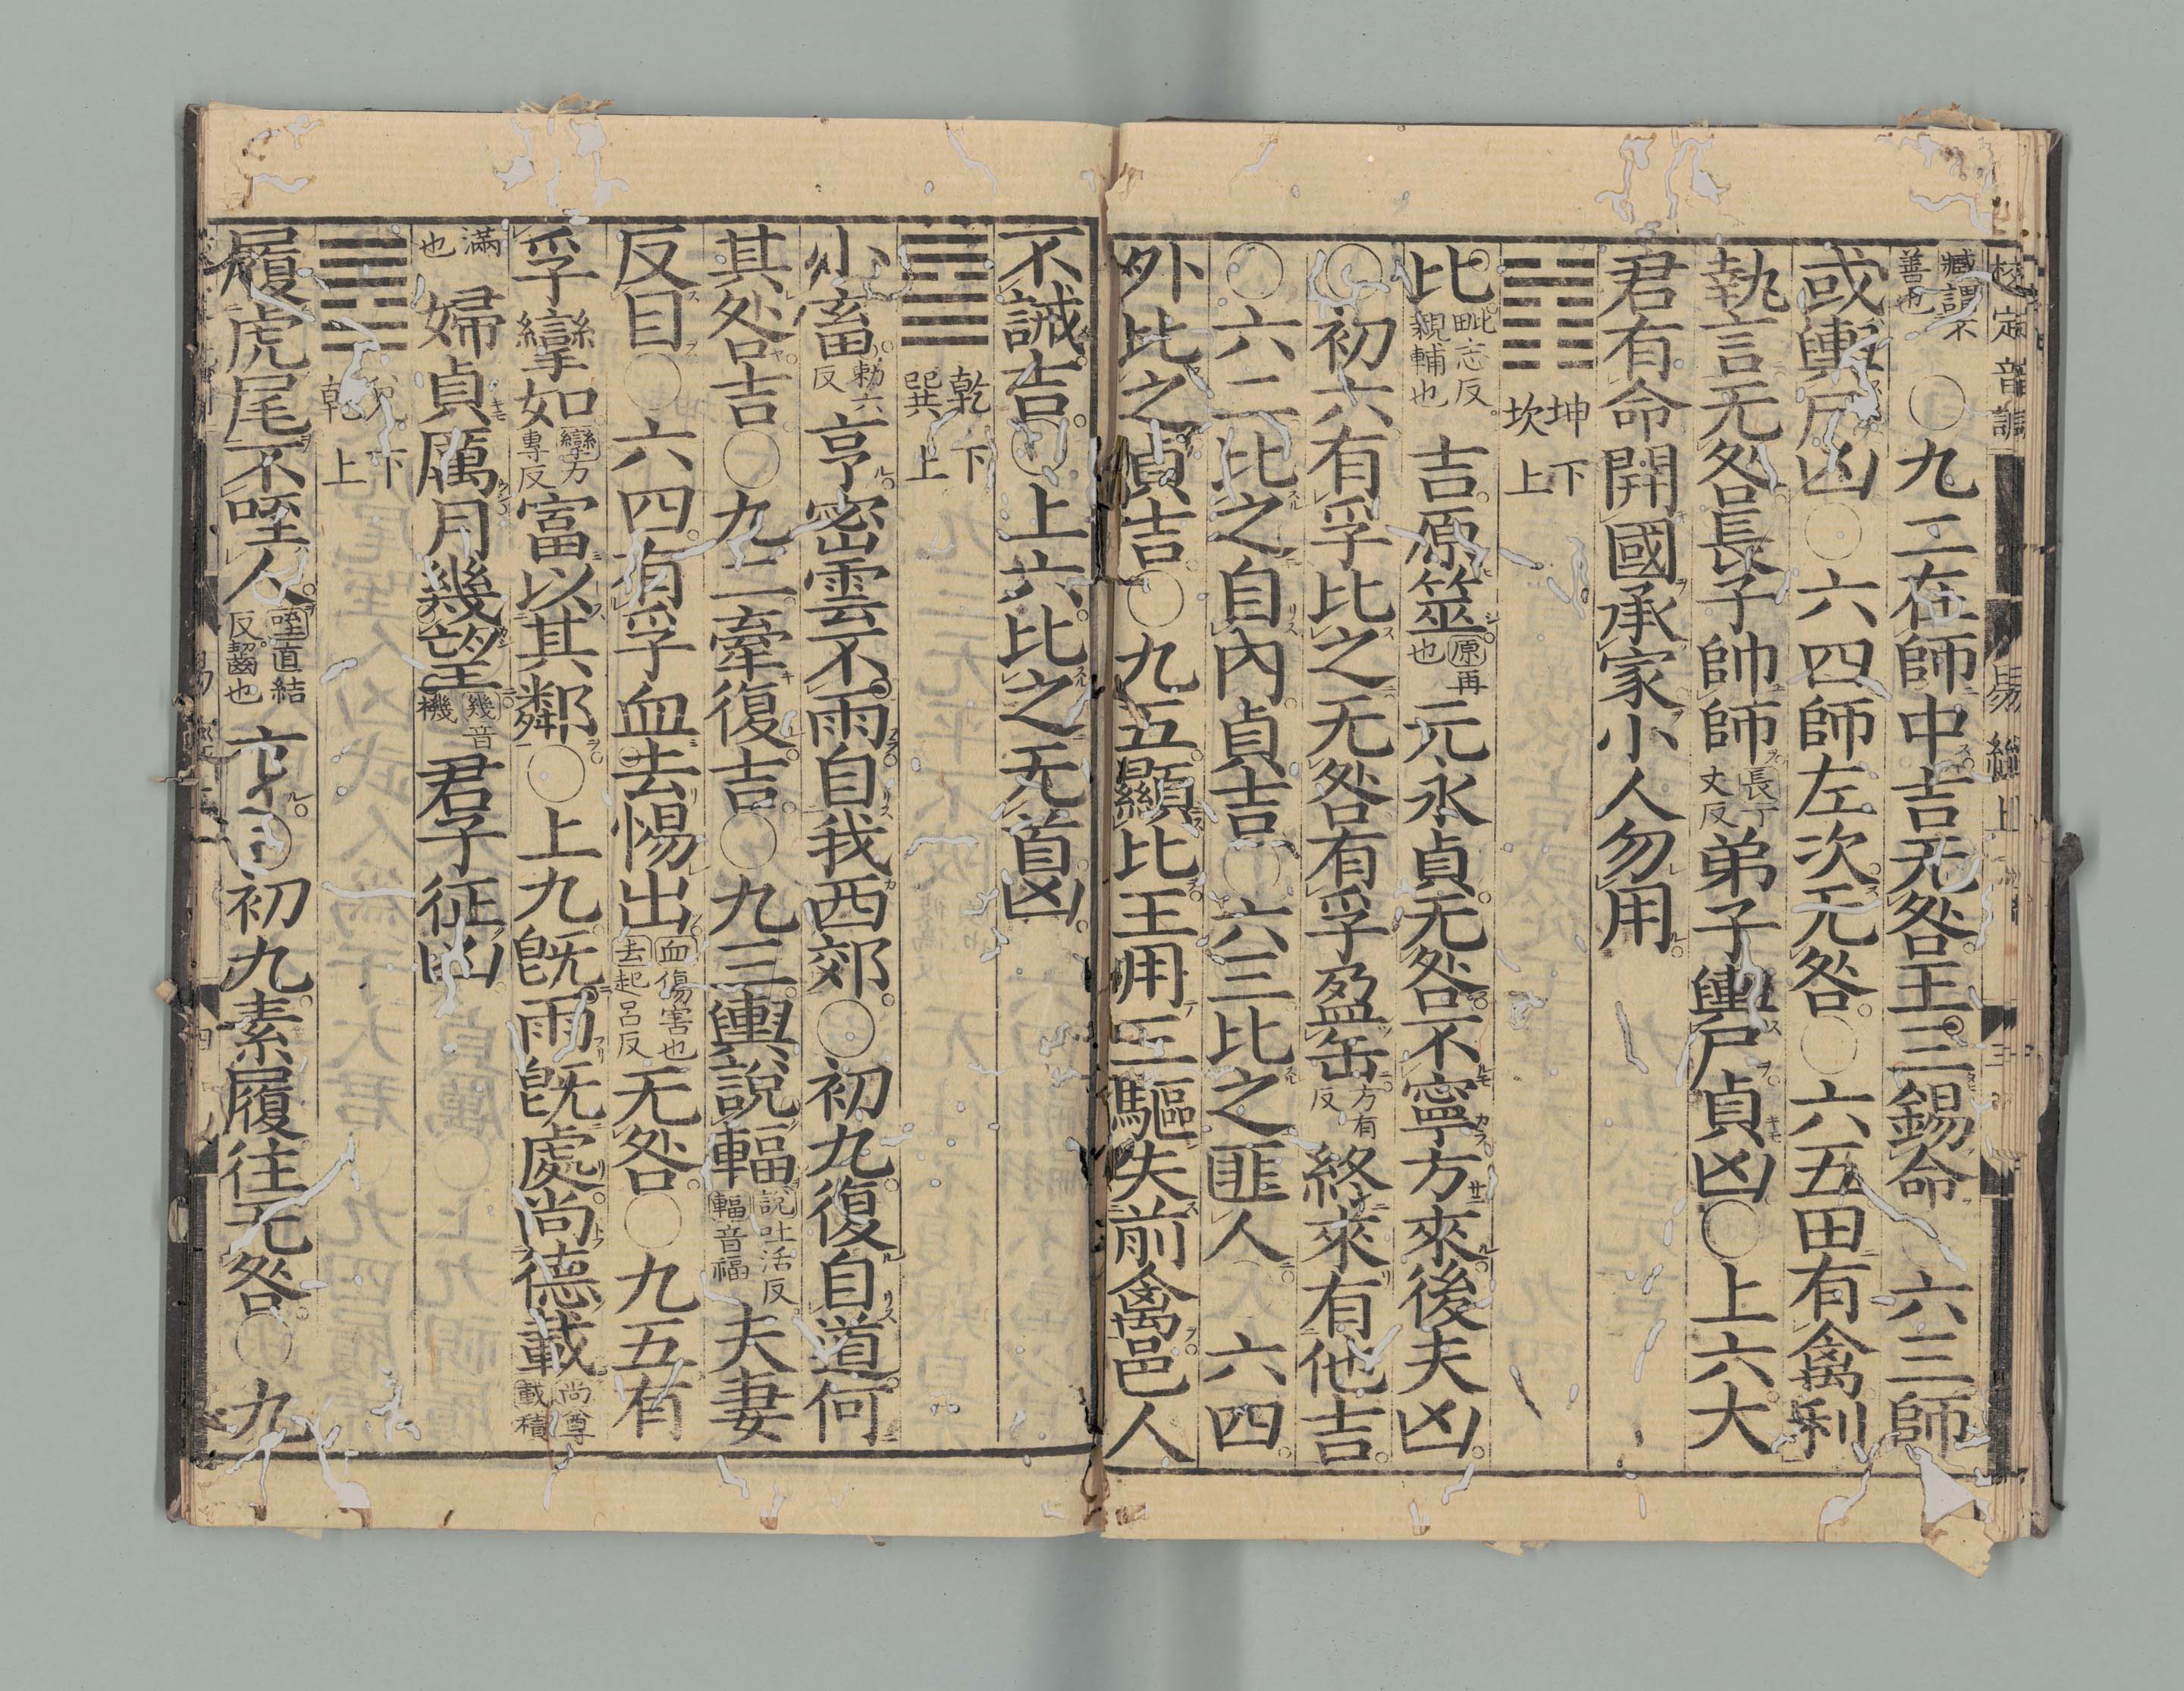 校定音訓 易經上 三
臧謂不善也 〇九二在師中吉无咎王三錫命〇六三師
或輿尸凶〇六四師左次无咎〇六五田有禽利
執言无咎長子帥師長丁丈反弟子輿尸貞凶〇上六大
君有命開國承家小人勿用
䷇坤下坎上
比毗志反親輔也吉原筮原再也元永貞无咎不寧方來後夫凶
〇初六有孚比之无咎有孚盈缶方有反終來有他吉
〇六二比之自內貞吉〇六三比之匪人〇六四
外比之貞吉〇九五顯比王用三驅失前禽邑人
不誡吉〇上六比之无首凶
䷈乾下巽上
小畜勅六反亨密雲不雨自我西郊〇初九復自道何
其咎吉〇九二牽復吉〇九三輿說輻說吐活反輻音福夫妻
反目〇六四有孚血去惕出血傷害也去起呂反无咎〇九五有
孚攣如攣力專反富以其鄰〇上九旣雨旣處尚德載尚尊載積
滿也婦貞厲月幾望幾音機君子征凶
䷉兌下乾上
履虎尾不咥人咥直結反齧也亨〇初九素履往无咎〇九
易經上 四